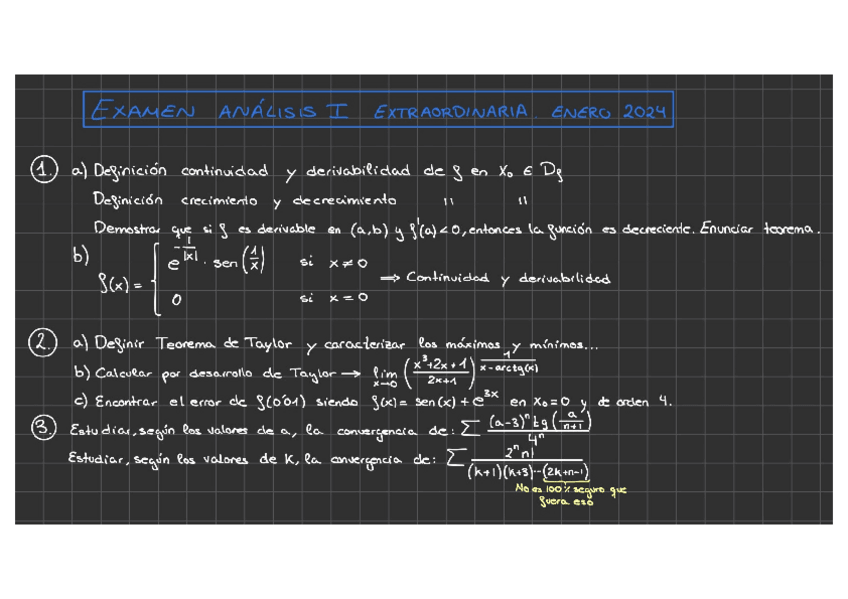 EXAMEN ANÁLISIS I EXTRAORDINARIA. ENERO 2024
1. a) Definición continuidad y derivabilidad de f en x₀ ∈ D_f
Definición crecimiento y decrecimiento " "
Demostrar que si f es derivable en (a,b) y f'(a)<0, entonces la función es decreciente. Enunciar teorema.
b) f(x) = { e^(-1/|x|) · sen(1/x) si x ≠ 0
0 si x = 0 ⟹ Continuidad y derivabilidad
2. a) Definir Teorema de Taylor y caracterizar los máximos y mínimos...
b) Calcular por desarrollo de Taylor → lim x→0 ((x³+2x+1)/(2x+1))^(1/(x-arctg(x)))
c) Encontrar el error de f(0'01) siendo f(x) = sen(x) + e^(3x) en x₀=0 y de orden 4.
3. Estudiar, según los valores de a, la convergencia de: Σ (a-3)ⁿ tg(a/(n+1)) / 4ⁿ
Estudiar, según los valores de K, la convergencia de: Σ 2ⁿ n! / ((k+1)(k+3)···(2k+n-1))
No es 100% seguro que
fuera eso